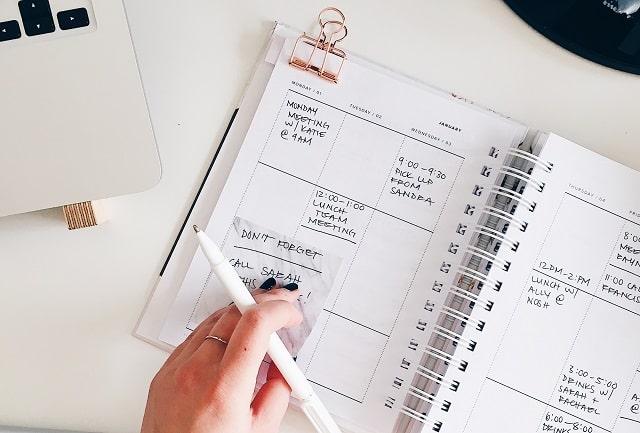 MONDAY / 01
TUESDAY / 02
JANUARY
WEDNESDAY / 03
MONDAY
MEETING
W/ KATIE
@ 9AM
9:00-9:30
PICK UP
FROM
SANDRA
12:00-1:00
LUNCH
TEAM
MEETING
DON'T FORGET
CALL SARAH
THURSDAY / 04
12PM-2PM
LUNCH W/
ALLY @
NOSH
11:00
3:00-5:00
DRINKS W/
SARAH +
RACHAEL
6:00-8:00
DRINKS